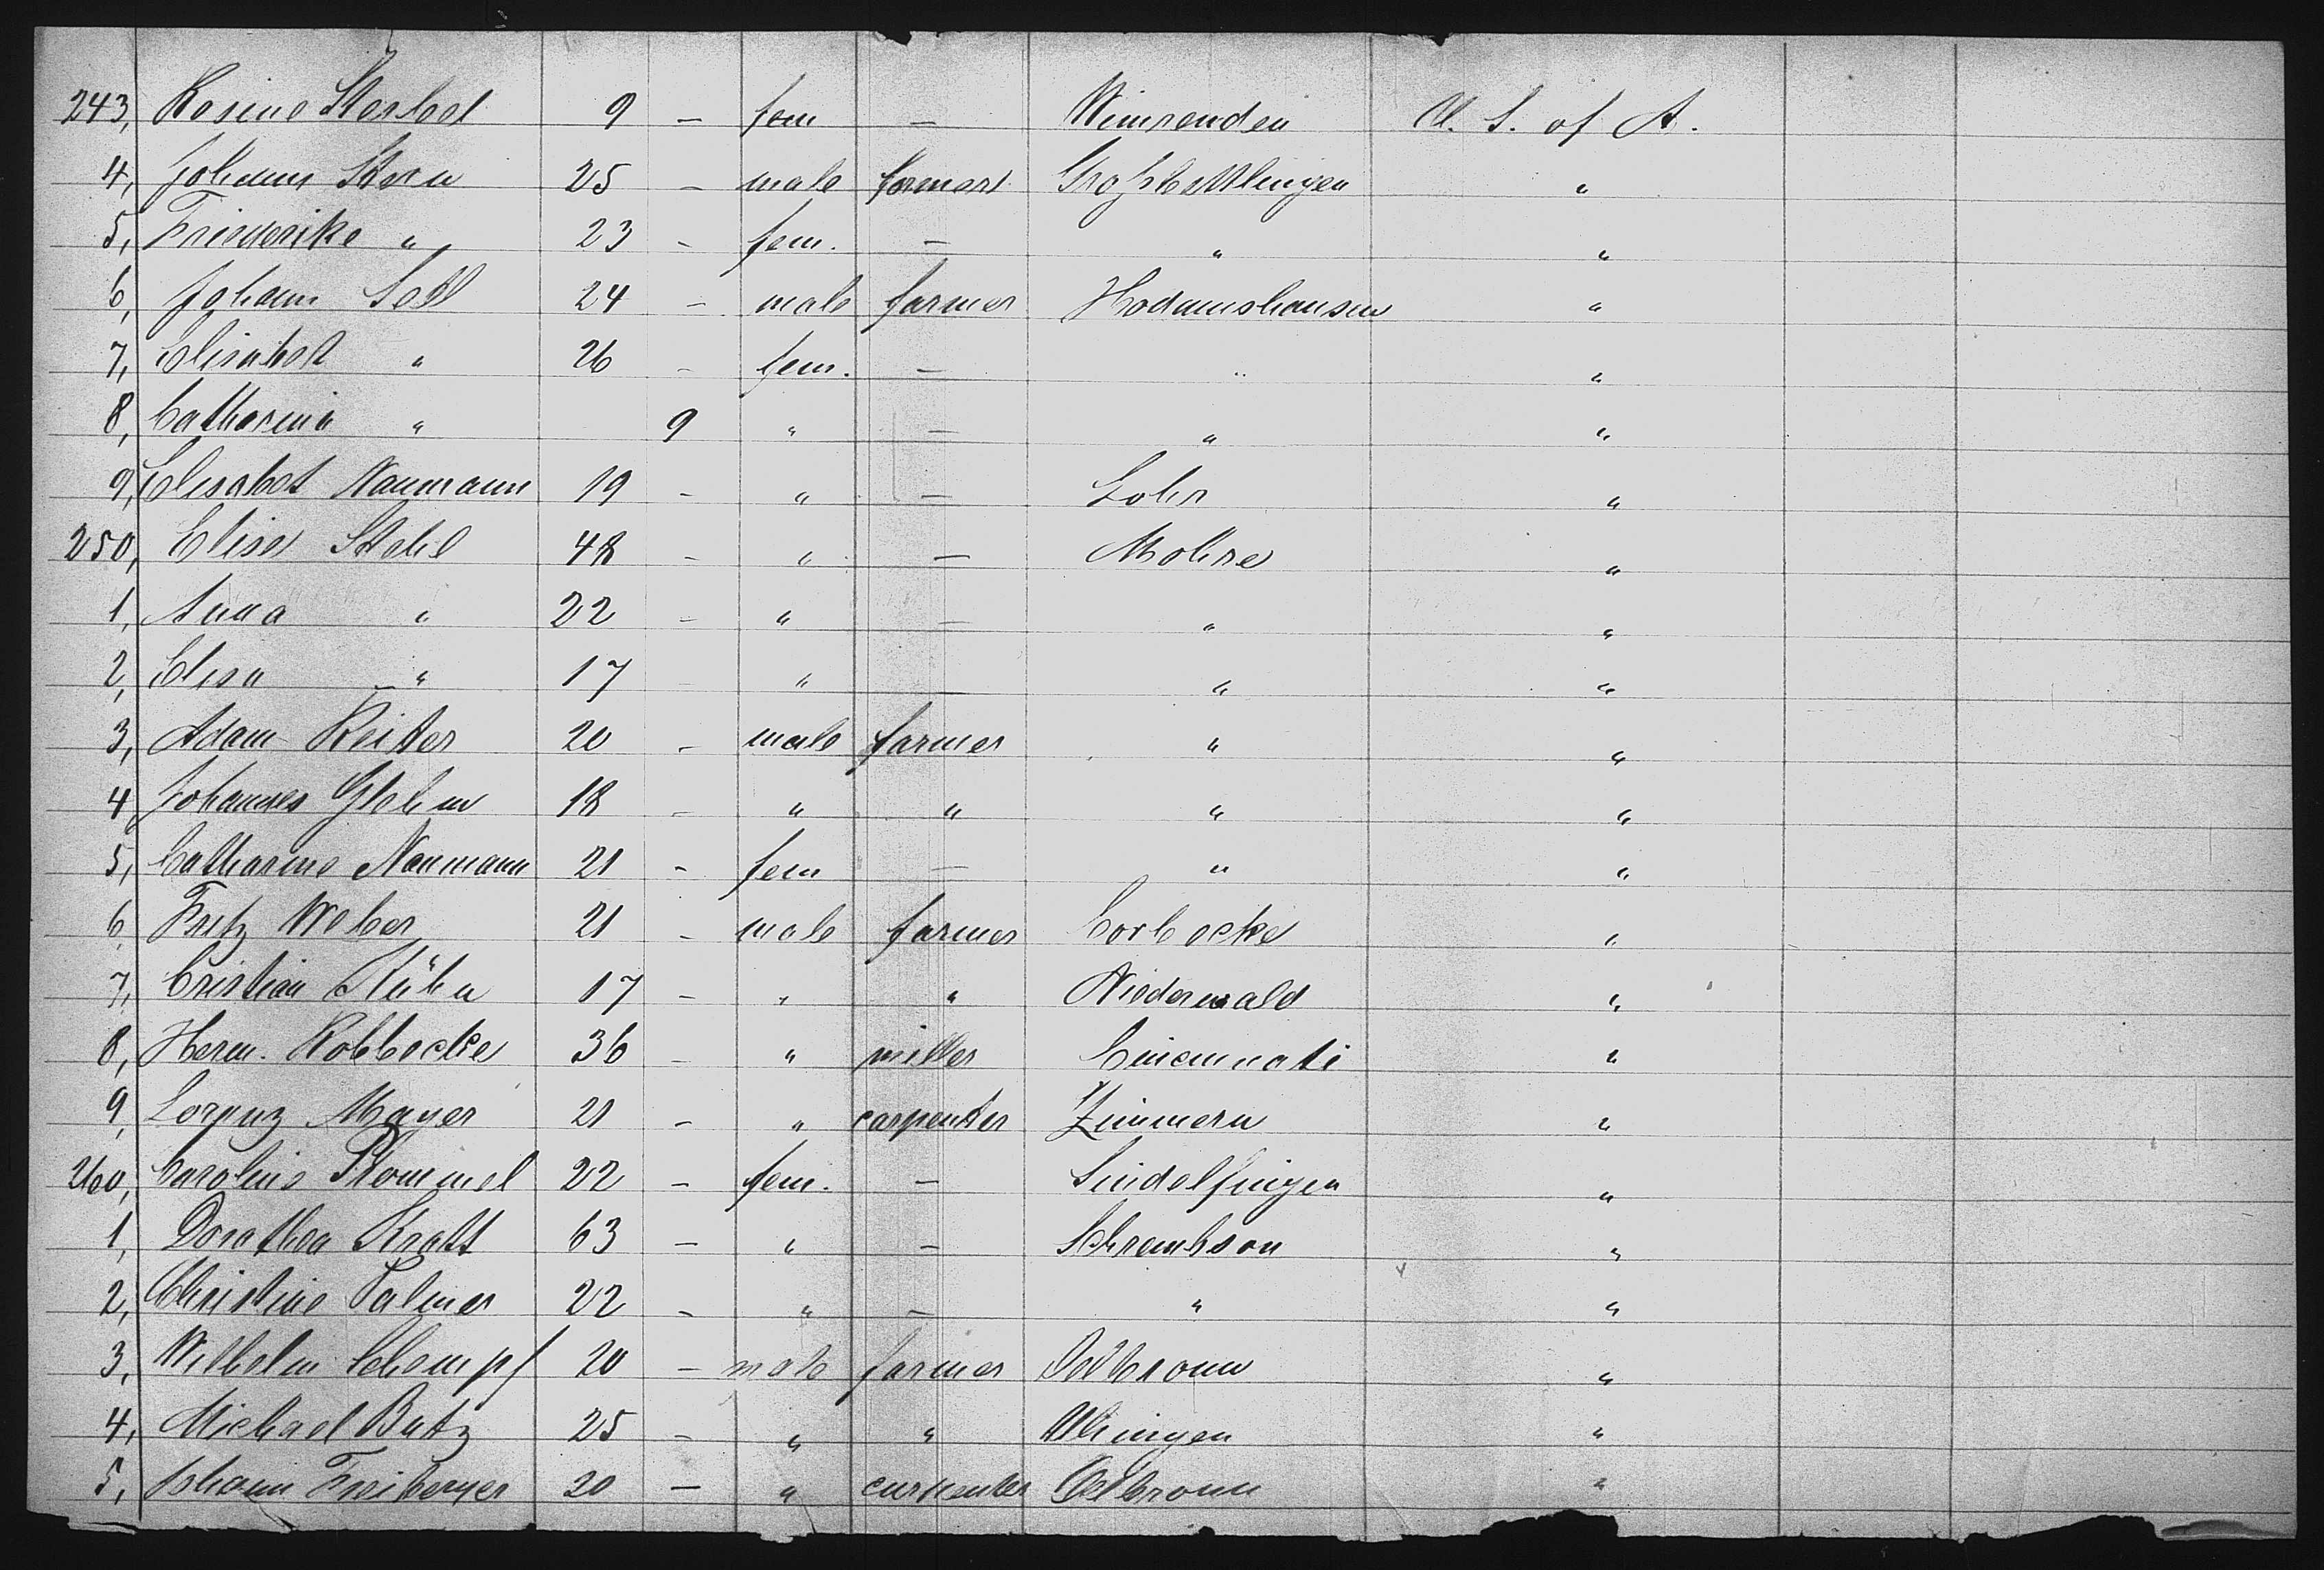 243, Rosine Sterbel 9 - fem - Winnenden U. S. of A.
4, Johann Stern 25 - male farmer Großbettlingen "
5, Friederike " 23 - fem. - " "
6, Johann Sell 24 - male farmer "
7, Elisabet " 26 - fem. - " "
8, Catharina " 9 " - " "
9, Elisabet Naumann 19 - " - Lohr "
250, Elise Stehl 48 - " - Mohra "
1, Anna " 22 - " - " "
2, Elisa " 17 - " - " "
3, Adam Reiter 20 - male farmer " "
4 Johannes 18 - " " " "
5, Catharine Naumann 21 - fem - " "
6, Fritz Weber 21 - male farmer Corbecke "
7, Cristian Kühn 17 - " " Niederwald "
8, Herm. Robbecke 36 - " miller Cincinnati "
9, Lorenz Mayer 21 - " carpenter Zimmern "
260, Caroline Rommel 22 - fem. - Sindelfingen "
1, Dorothea Kratt 63 - " - "
2, Christine Palmer 22 - " - " "
3, Wilhelm Schempf 20 - male farmer Oelbronn "
4, Michael Butz 25 - " " Uhingen "
5, Johann Freiberger 20 - " carpenter Oelbronn "